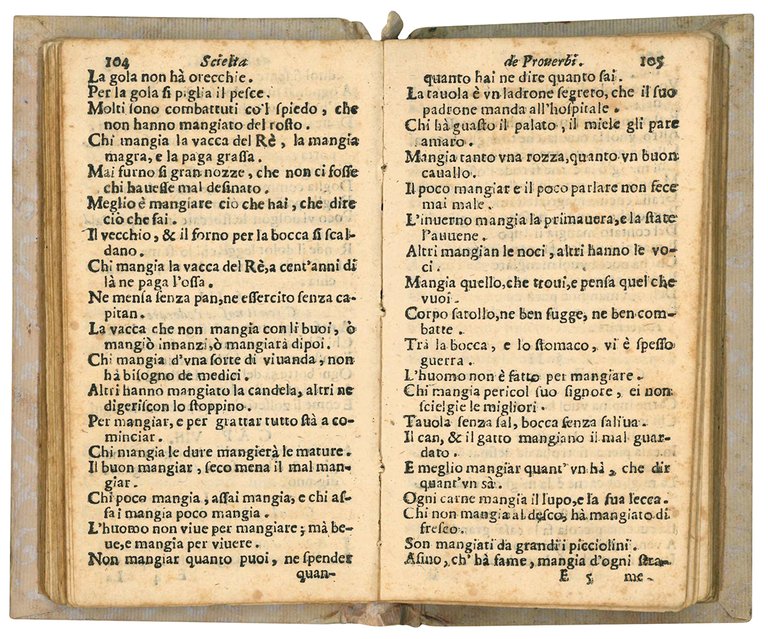 104 Scielta
La gola non hà orecchie.
Per la gola si piglia il pesce.
Molti sono combattuti co'l spiedo, che
non hanno mangiato del rosto.
Chi mangia la vacca del Rè, la mangia
magra, e la paga grassa.
Mai furno sì gran nozze, che non ci fosse
chi hauesse mal desinato.
Meglio è mangiare ciò che hai, che dire
ciò che sai.
Il vecchio, & il forno per la bocca si scal-
dano.
Chi mangia la vacca del Rè, a cent'anni di
là ne paga l'ossa.
Ne mensa senza pan, ne essercito senza ca-
pitan.
La vacca che non mangia con li buoi, ò
mangiò innanzi, ò mangiarà dipoi.
Chi mangia d'vna sorte di viuanda, non
hà bisogno de medici.
Altri hanno mangiato la candela, altri ne
digeriscon lo stoppino.
Per mangiar, e per grattar tutto stà a co-
minciar.
Chi mangia le dure mangierà le mature.
Il buon mangiar, seco mena il mal man-
giar.
Chi poco mangia, assai mangia, e chi as-
sai mangia poco mangia.
L'huomo non viue per mangiare; mà be-
ue, e mangia per viuere.
Non mangiar quanto puoi, ne spender
quan-
de Prouerbi. 105
quanto hai ne dire quanto sai.
La tauola è vn ladrone segreto, che il suo
padrone manda all'hospitale.
Chi hà guasto il palato, il miele gli pare
amaro.
Mangia tanto vna rozza, quanto vn buon
cauallo.
Il poco mangiar e il poco parlare non fece
mai male.
L'inuerno mangia la primauera, e la state
l'auuene.
Altri mangian le noci, altri hanno le vo-
ci.
Mangia quello, che troui, e pensa quel che
vuoi.
Corpo satollo, ne ben fugge, ne ben com-
batte.
Trà la bocca, e lo stomaco, vi è spesso
guerra.
L'huomo non è fatto per mangiare.
Chi mangia pericol suo signore, ei non
scielgie le migliori.
Tauola senza sal, bocca senza saliua.
Il can, & il gatto mangiano il mal guar-
dato.
E meglio mangiar quant'vn hà, che dir
quant'vn sà.
Ogni carne mangia il lupo, e la sua lecca.
Chi non mangia al desco, hà mangiato di
fresco.
Son mangiati da grandi i picciolini.
Asino, ch'hà fame, mangia d'ogni stra-
E 5 me-